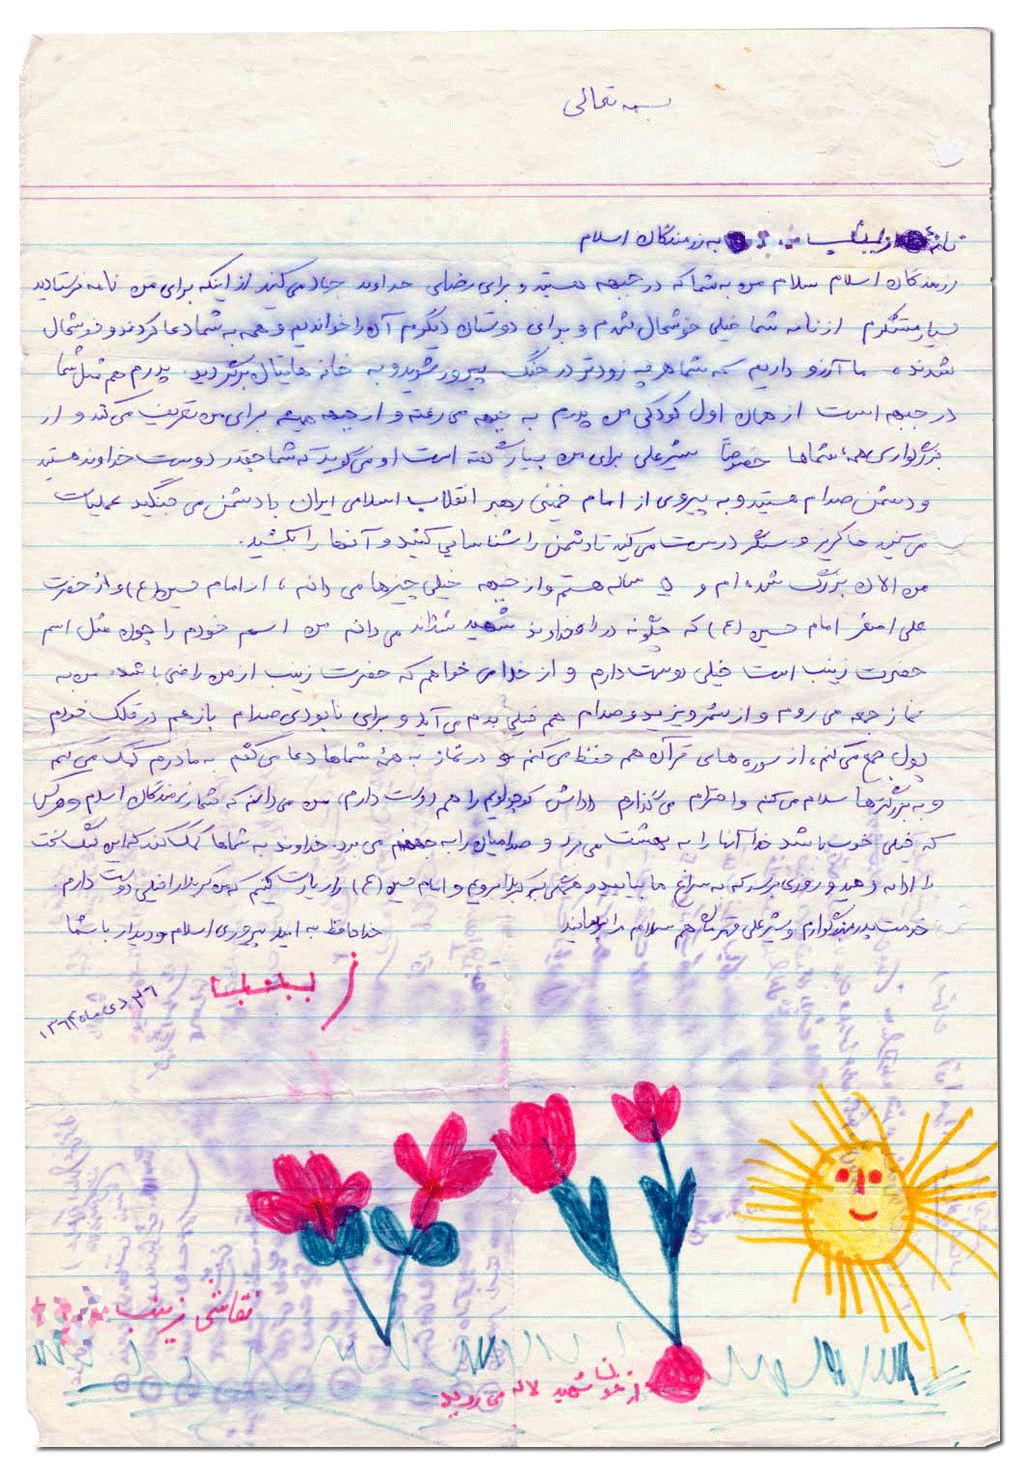 بسمه تعالی
نامه زینب به رزمندگان اسلام
رزمندگان اسلام سلام من به شما که در جبهه هستید و برای رضای خداوند جهاد می کنید از اینکه برای من نامه فرستادید
بسیار متشکرم از نامه شما خیلی خوشحال شدم و برای دوستان دیگرم آن را خواندیم و همه به شما دعا کردند و خوشحال
شدند. ما آرزو داریم که شما هر چه زودتر در جنگ پیروز شوید و به خانه هایتان برگردید. پدرم هم مثل شما
در جبهه است از همان اول کودکی من پدرم به جبهه می رفته و از جبهه همیشه برای من تعریف می کند و از
بزرگواری همه شماها خصوصاً شیرعلی برای من بسیار گفته است او می گوید که شما چقدر دوست خداوند هستید
و دشمن صدام هستید و به پیروی از امام خمینی رهبر انقلاب اسلامی ایران با دشمن می جنگید عملیات
می کنید خاکریز و سنگر درست می کنید تا دشمن را شناسایی کنید و آنها را بکشید.
من الان بزرگ شده ام و ۵ ساله هستم و از جبهه خیلی چیزها می دانم، از امام حسین (ع) و از حضرت
علی اصغر امام حسین (ع) که چگونه در راه خداوند شهید شدند می دانم من اسم خودم را چون مثل اسم
حضرت زینب است خیلی دوست دارم و از خدا می خواهم که حضرت زینب از من راضی باشد. من به
نماز جمعه می روم و از شمر و یزید و صدام هم خیلی بدم می آید و برای نابودی صدام باز هم در قلک خودم
پول جمع می کنم، از سوره های قرآن هم حفظ می کنم و در نماز به همه شماها دعا می کنم به مادرم کمک می کنم
و به بزرگترها سلام می کنم و احترام می گذارم داداش کوچولویم را هم دوست دارم، من می دانم که شما رزمندگان اسلام و هر کس
که خیلی خوب باشد خدا آنها را به بهشت می برد و صدامیان را به جهنم می برد. خداوند به شماها کمک کند که این جنگ سخت
را ادامه دهید و روزی برسد که به سراغ ما بیایید و همگی به کربلا برویم و امام حسین (ع) را زیارت کنیم که من کربلا را خیلی دوست دارم.
خدمت پدر بزرگوارم و شیرعلی قهرمان هم سلام مرا برسانید خداحافظ به امید پیروزی اسلام و دیدار با شما
زینب
۲۶ دی ماه ۱۳۶۴
نقاشی زینب
از خون شهید لاله می روید